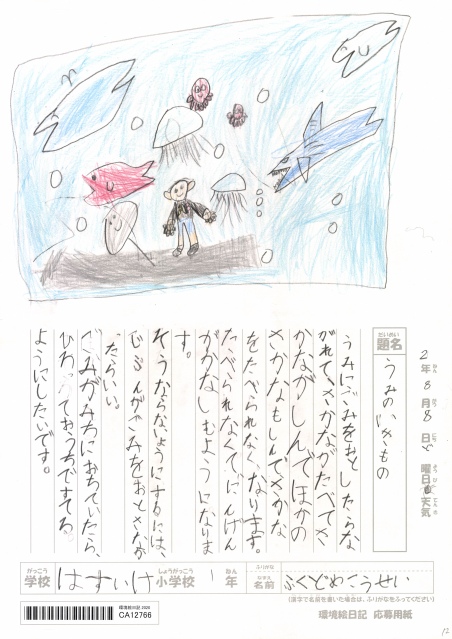 2年8月8日ど曜日 天気
だいめい
題名 うみのいきもの
うみにごみをおとしたらな
がれて、さかながたべてさ
かながしんでほかの
さかなもしんでさかな
をたべられなくなります。
たべられなくてにんげん
がかなしむようになりま
す。
そうならないようにするには、
じぶんがごみをおとさなか
ったらいい。
ごみがみちにおちていたら、
ひろっておうちですてる
ようにしたいです。
がっこう しょうがっこう ねん
学校 はすいけ小学校 1年
ふりがな
なまえ
名前 ふくどめこうせい
(漢字で名前を書いた場合は、ふりがなをふってください)
環境絵日記 2020
CA12766
環境絵日記 応募用紙
12